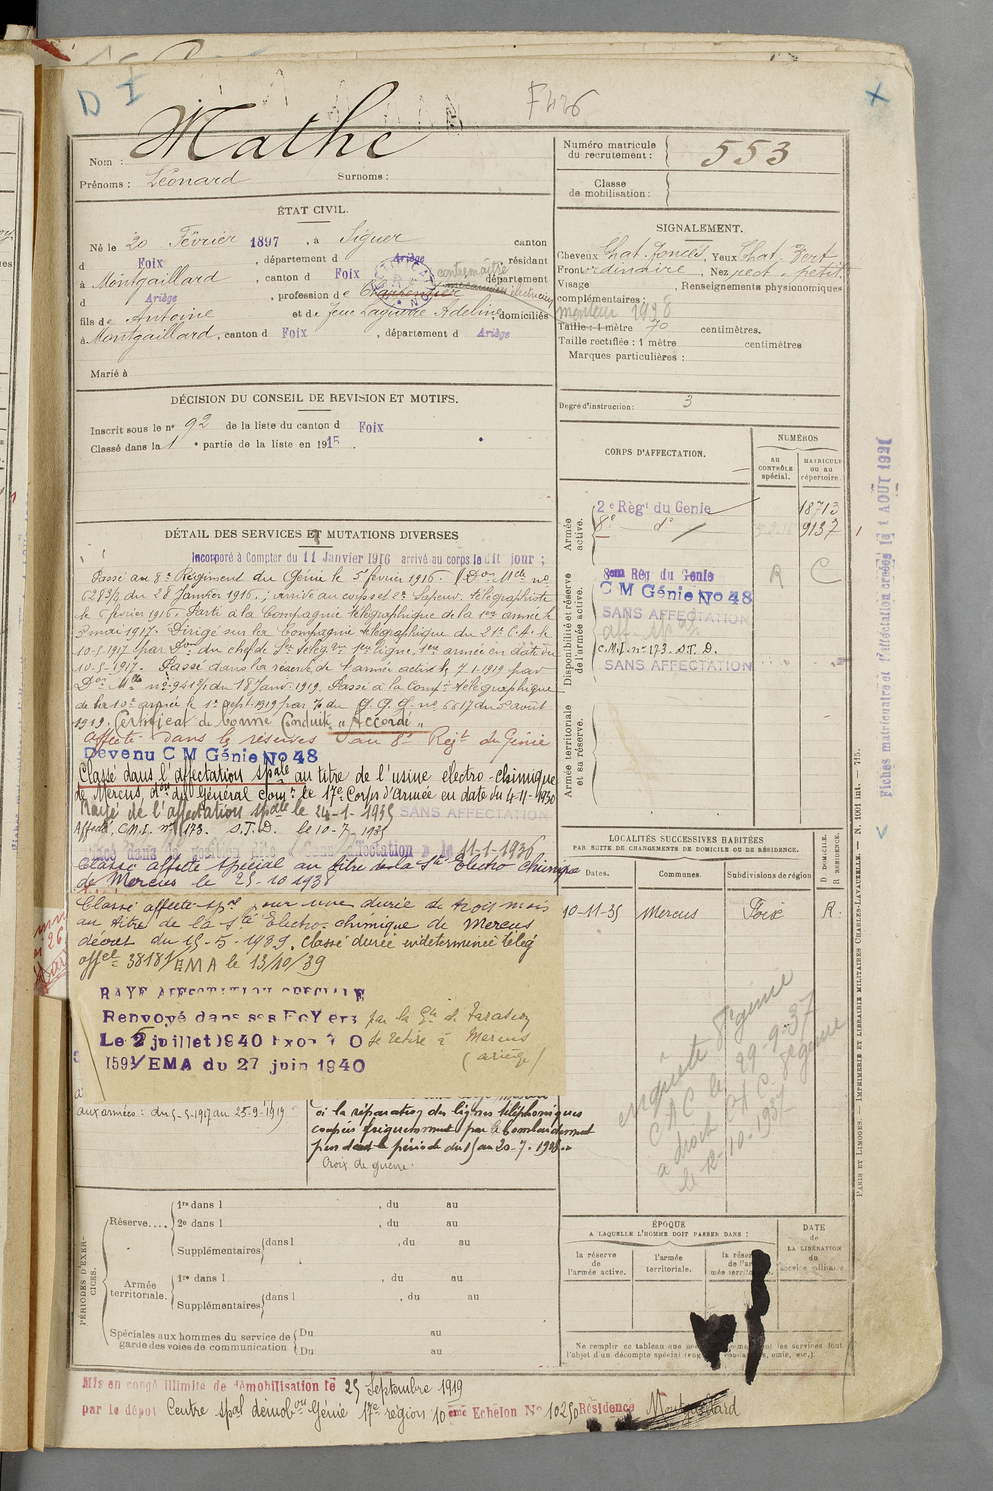 D I
F426
X
Nom : Mathe
Prénoms : Léonard Surnoms :
Numéro matricule du recrutement : 553
Classe de mobilisation :
ÉTAT CIVIL.
Né le 20 Février 1897, à Siguer canton
d Foix, département d Ariège résidant
à Montgaillard, canton d Foix département
d Ariège, profession de Charpentier
contremaître
mécanicien électricien
monteur 1928
fils de Antoine et de feue Adeline domiciliés
à Montgaillard, canton d Foix, département d Ariège
Marié à
SIGNALEMENT.
Cheveux Chat. foncés, Yeux Chat. Vert
Front ordinaire, Nez rect. petit
Visage , Renseignements physionomiques
complémentaires :
Taille : 1 mètre 70 centimètres.
Taille rectifiée : 1 mètre centimètres
Marques particulières :
Degré d'instruction : 3
DÉCISION DU CONSEIL DE REVISION ET MOTIFS.
Inscrit sous le n° 92 de la liste du canton d Foix
Classé dans la 1e partie de la liste en 1915.
CORPS D'AFFECTATION.
NUMÉROS
au CONTRÔLE spécial.
MATRICULE ou au répertoire.
Armée active.
2e Régt du Génie 18713
8e do 9137
Disponibilité et réserve de l'armée active.
8em Rég du Genie R C
C M Génie No 48
SANS AFFECTATION
C.M.I. n° 173. S.T.D.
SANS AFFECTATION
Armée territoriale et sa réserve.
DÉTAIL DES SERVICES ET MUTATIONS DIVERSES
Incorporé à Compter du 11 Janvier 1916 arrivé au corps le dit jour ;
Passé au 8e Régiment du Génie le 5 février 1916. (Don Mlle no
628 3/4 du 28 Janvier 1916. ; arrivé au corps et 2e Sapeur télégraphiste
le février 1916. Parti à la Compagnie télégraphique de la 1ère armée le
3 mai 1917. Dirigé sur la Compagnie télégraphique du 21e C.A. le
10-5-1917 par Don du chef de Sce télégue 1ère ligne, 1ère armée en date du
10-5-1917. Passé dans la réserve de l'armée active le 7-1-1919 par
Don Mlle n° 941 du 18 Janv. 1919. Passé à la Compie télégraphique
de la 10e armée le 1er Sept. 1919 par du G.Q.G. n° 6617 du août
1919. Certificat de bonne Conduite "Accordé"
Affecté dans la réserve au 8e Régt du Génie
Devenu C M Génie No 48
Classé dans l'affectation spale au titre de l'usine électro-chimique
de Mercus, don du Général Comt le 17e Corps d'Armée en date du 4-11-1930
Rayé de l'affectation spale le 24-1-1935 SANS AFFECTATION
Affecté, C.M.I. n° 173. S.T.D. le 10-7-1935
Placé dans la position dite "Sans affectation" le 11-1-1936
Classé affecté spécial au titre de la Sté Electro Chimique
de Mercus le 25-10-1938
Classé affecté spal pour une durée de trois mois
au titre de la Sté Electro-chimique de Mercus
décret du 15-5-1939. Classé durée indéterminée télég
offel 38181/EMA le 13/10/39
RAYE AFFECTATION SPECIALE
Renvoyé dans ses FoYers par le Gl d. Tarascon
Le 5 juillet 1940 se retire à Mercus
1591/EMA du 27 juin 1940 (ariège)
aux armées : du 5-5-1917 au 25-9-1919
à la réparation des lignes téléphoniques
coupées fréquemment par le bombardement
pendant la période du 15 au 20-7-1918.
Croix de guerre.
LOCALITÉS SUCCESSIVES HABITÉES
PAR SUITE DE CHANGEMENTS DE DOMICILE OU DE RÉSIDENCE.
Dates. Communes. Subdivisions de région
D. DOMICILE. R. RÉSIDENCE.
10-11-35 Mercus Foix R.
enquête 8e génie
CAC le 29-9-37
à droit CAC 8e génie
le 12-10-1937
PÉRIODES D'EXERCICES.
Réserve.... 1re dans l , du au
2e dans l , du au
Supplémentaires dans l , du au
Armée territoriale. 1re dans l , du au
Supplémentaires dans l , du au
Spéciales aux hommes du service de garde des voies de communication Du au
Du au
ÉPOQUE
A LAQUELLE L'HOMME DOIT PASSER DANS :
la réserve de l'armée active.
l'armée territoriale.
la réserve de l'armée territoriale.
DATE de LA LIBÉRATION du service militaire.
Mis en congé illimité de démobilisation le 25 Septembre 1919
par le dépôt Centre spal démobon Génie 17e région 10 ème Echelon N° 10250 Résidence Montgaillard
PARIS ET LIMOGES. — IMPRIMERIE ET LIBRAIRIE MILITAIRES CHARLES-LAVAUZELLE. — N. 1001 int. — 715.